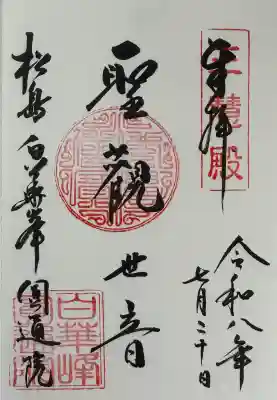 奉拝
三慧殿
令和八年
七月二十日
聖観世音
松島 白華峰 圓通院
白華峰